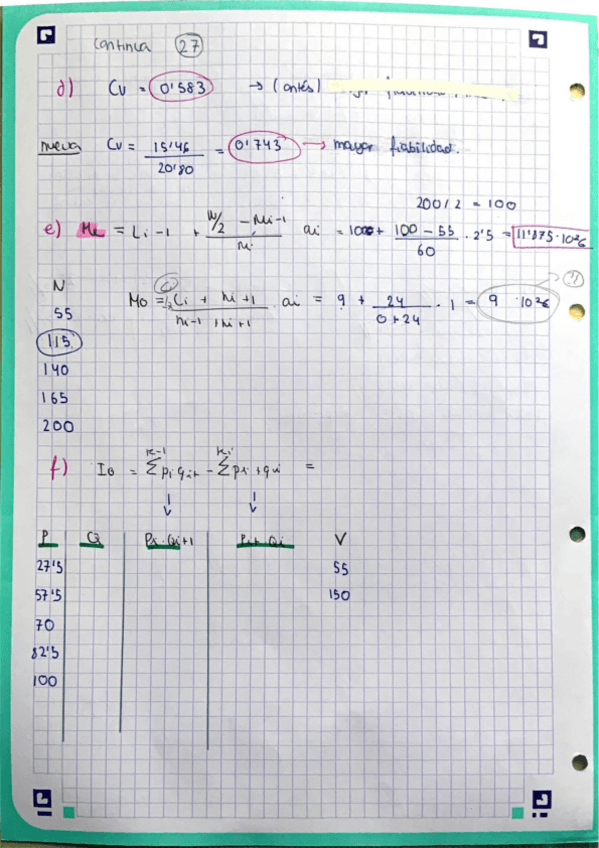 continua 27
d) Cv = 0'583 → (antes)
nueva Cv = 15'46 / 20'80 = 0'743 → mayor fiabilidad.
200/2 = 100
e) Me = Li-1 + N/2 - Ni-1 / ni ai = 10 + 100 - 55 / 60 · 2'5 = 11'875 · 10³€
N
Mo = Li + ni+1 / ni-1 + ni+1 · ai = 9 + 24 / 0+24 · 1 = 9 · 10³€
55
115
140
165
200
f) IG = Σ pi qi+ - Σ pi+ qi =
P Q Pi·Qi+1 Pi+ Qi V
27'5 55
57'5 150
70
82'5
100